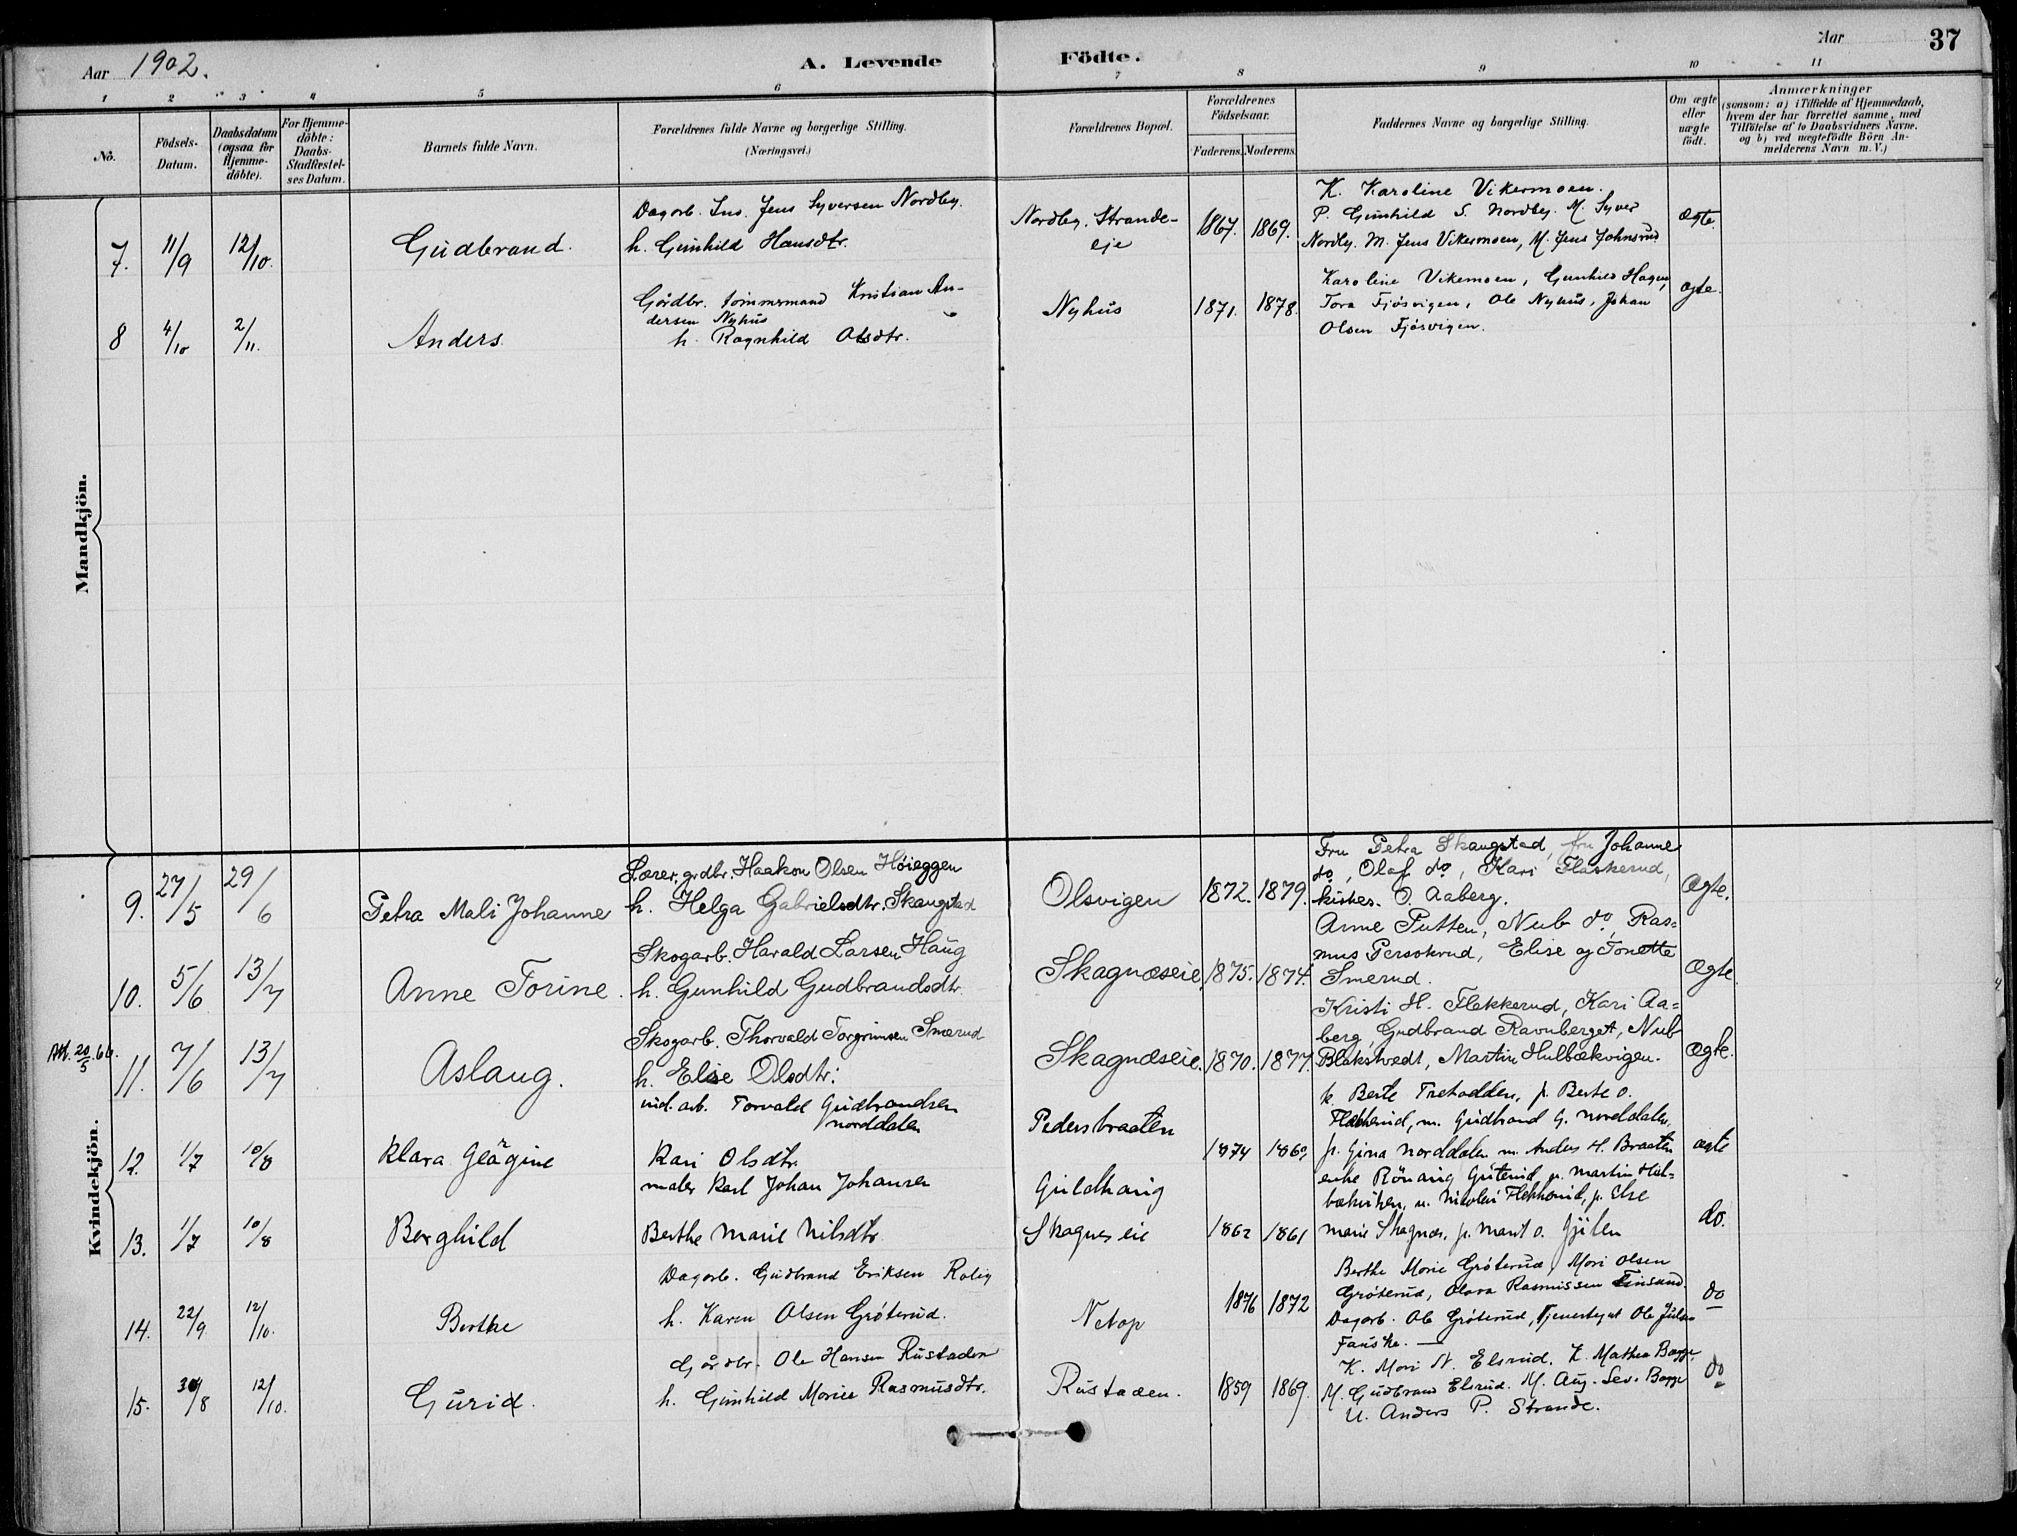 Aar 1902.
A. Levende Födte.
Aar
37
1 2 3 4 5 6 7 8 9 10 11
No.
Födsels-Datum.
Daabsdatum (ogsaa for Hjemme-döbte).
For Hjemme-döbte: Daabs-Stadfæstel-ses Datum.
Barnets fulde Navn.
Forældrenes fulde Navne og borgerlige Stilling. (Næringsvei.)
Forældrenes Bopæl.
Forældrenes Födselsaar.
Faderens. Moderens.
Faddernes Navne og borgerlige Stilling.
Om ægte eller uægte födt.
Anmærkninger
(saasom: a) i Tilfælde af Hjemmedaab,
hvem der har forrettet samme, med
Tilföielse af to Daabsvidners Navne,
og b) ved uægtefödte Börn An-
melderens Navn m. V.)
Mandkjön.
7. 11/9 12/10. Gudbrand.
Dagarb. Ins. Jens Syversen Nordby.
h. Gunhild Hansdtr.
Nordby, Strande-
eje
1867. 1869.
K. Karoline Vikermoen.
P. Gunhild S. Nordby. M. Syver
Nordby. M. Jens Vikermoen, M. Jens Johnsrud
ægte.
8 4/10 2/11. Anders.
Gårdbr. tømmermand Kristian An-
dersen Nyhus
h. Ragnhild Olsdtr.
Nyhus
1871. 1878.
Karoline Vikemoen, Gunhild Hagen,
Tora Fjøsvigen, Ole Nyhus, Johan
Olsen Fjøsvigen.
ægte.
Kvindekjön.
9. 27/5 29/6 Petra Mali Johanne
Lærer, grdbr. Haakon Olsen Høieggen
h. Helga Gabrielsdtr. Skaugstad
Olsvigen
1872. 1879.
Fru Petra Skaugstad, fru Johanne
do, Olaf do, Kari Flaskerud,
O. Aaberg.
Ægte.
10. 5/6 13/7 Anne Torine.
Skogarb. Harald Larsen Haug
h. Gunhild Gudbrandsdtr.
Skagnæseie
1875. 1874.
Anne Putten, Nub do, Ras=
mus Persokrud, Elise og Tonette
Smerud.
Ægte.
Att. 20/5 66.
11. 7/6 13/7 Aslaug.
Skogarb. Thorvald Torgrimsen Smerud
h. Elise Olsdtr.
Skagnæseie.
1870. 1877.
Kristi H. Flekkerud, Kari Aa=
berg, Gudbrand Ravnberget, Nub
Blakstvedt, Martin Hulbækvigen.
Ægte.
12. 1/7 10/8 Klara
ind. arb. Torvald Gudbrandsen
Norddalen
Kari Olsdtr.
Pedersbraaten
1874
k. Berte Tretodden, p. Berte O.
Flekkerud, m. Gudbrand G. Norddalen,
p. Gina Norddalen m. Anders H. Braaten
ægte
13. 1/7 10/8 Borghild
maler Karl Johan Johansen
Berthe Marie Nilsdtr
Guldhaug
Skagnes eie
1862 1861
enke Rönaug Gruterud, m. Martin Hul=
bækviken, u. Nicolai Flekkerud, p. Else
Marie Skagnæs, p. Marit O. Gjilen
do.
14. 22/9 12/10. Berthe
Dagarb. Gudbrand Eriksen Rolig
h. Karen Olsen Grøterud.
Netop
1876 1872
Berthe Marie Grøterud, Mari Olsen
Grøterud, Olava Rasmussen
Dagarb. Ole Grøterud, Tjenestegut Ole Julsen
Fauske.
do
15. 30/8 12/10. Gurid.
Gårdbr. Ole Hansen Rustaden
h. Gunhild Marie Rasmusdtr.
Rustaden.
1859 1869.
K. Mari N. Elsrud. K. Mathea Bagge
M. Gudbrand Elsrud. M. Aug. Sev. Bagge
U. Anders P. Strande.
do